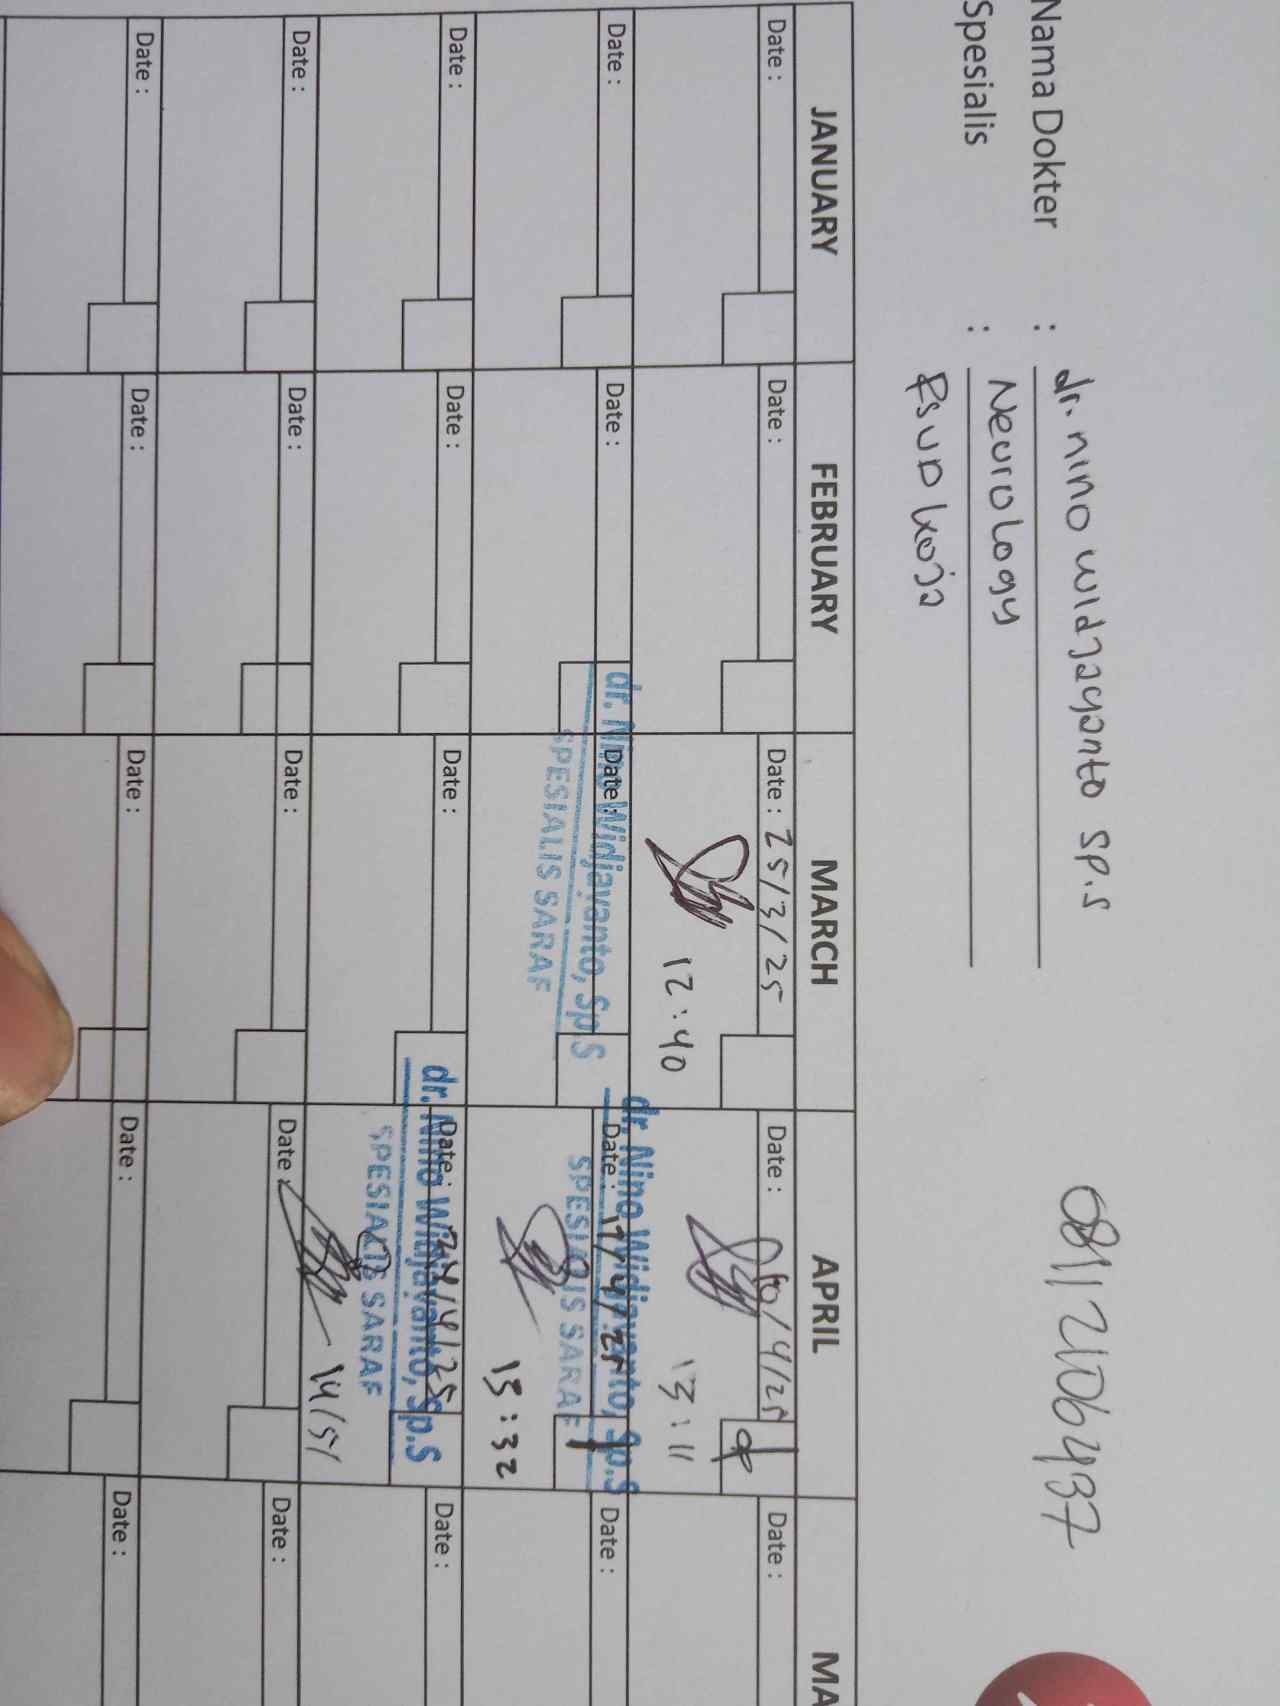 Nama Dokter : dr. nino widjajanto sp.s
Spesialis : Neurology
RSUD Koja
JANUARY FEBRUARY MARCH APRIL MA
Date : Date : Date : 25/3/25 Date : 10/4/25 Date :
12:40 13:11
dr. Nino Widjayanto, Sp.S dr. Nino Widjayanto, Sp.S
Date : Date : Date : Date : 17/4/25 Date :
SPESIALIS SARAF SPESIALIS SARAF
13:32
dr. Nino Widjayanto, Sp.S
Date : Date : Date : Date : 24/4/25 Date :
SPESIALIS SARAF
Date : Date : Date : Date : Date :
Date : Date : Date : Date : Date :